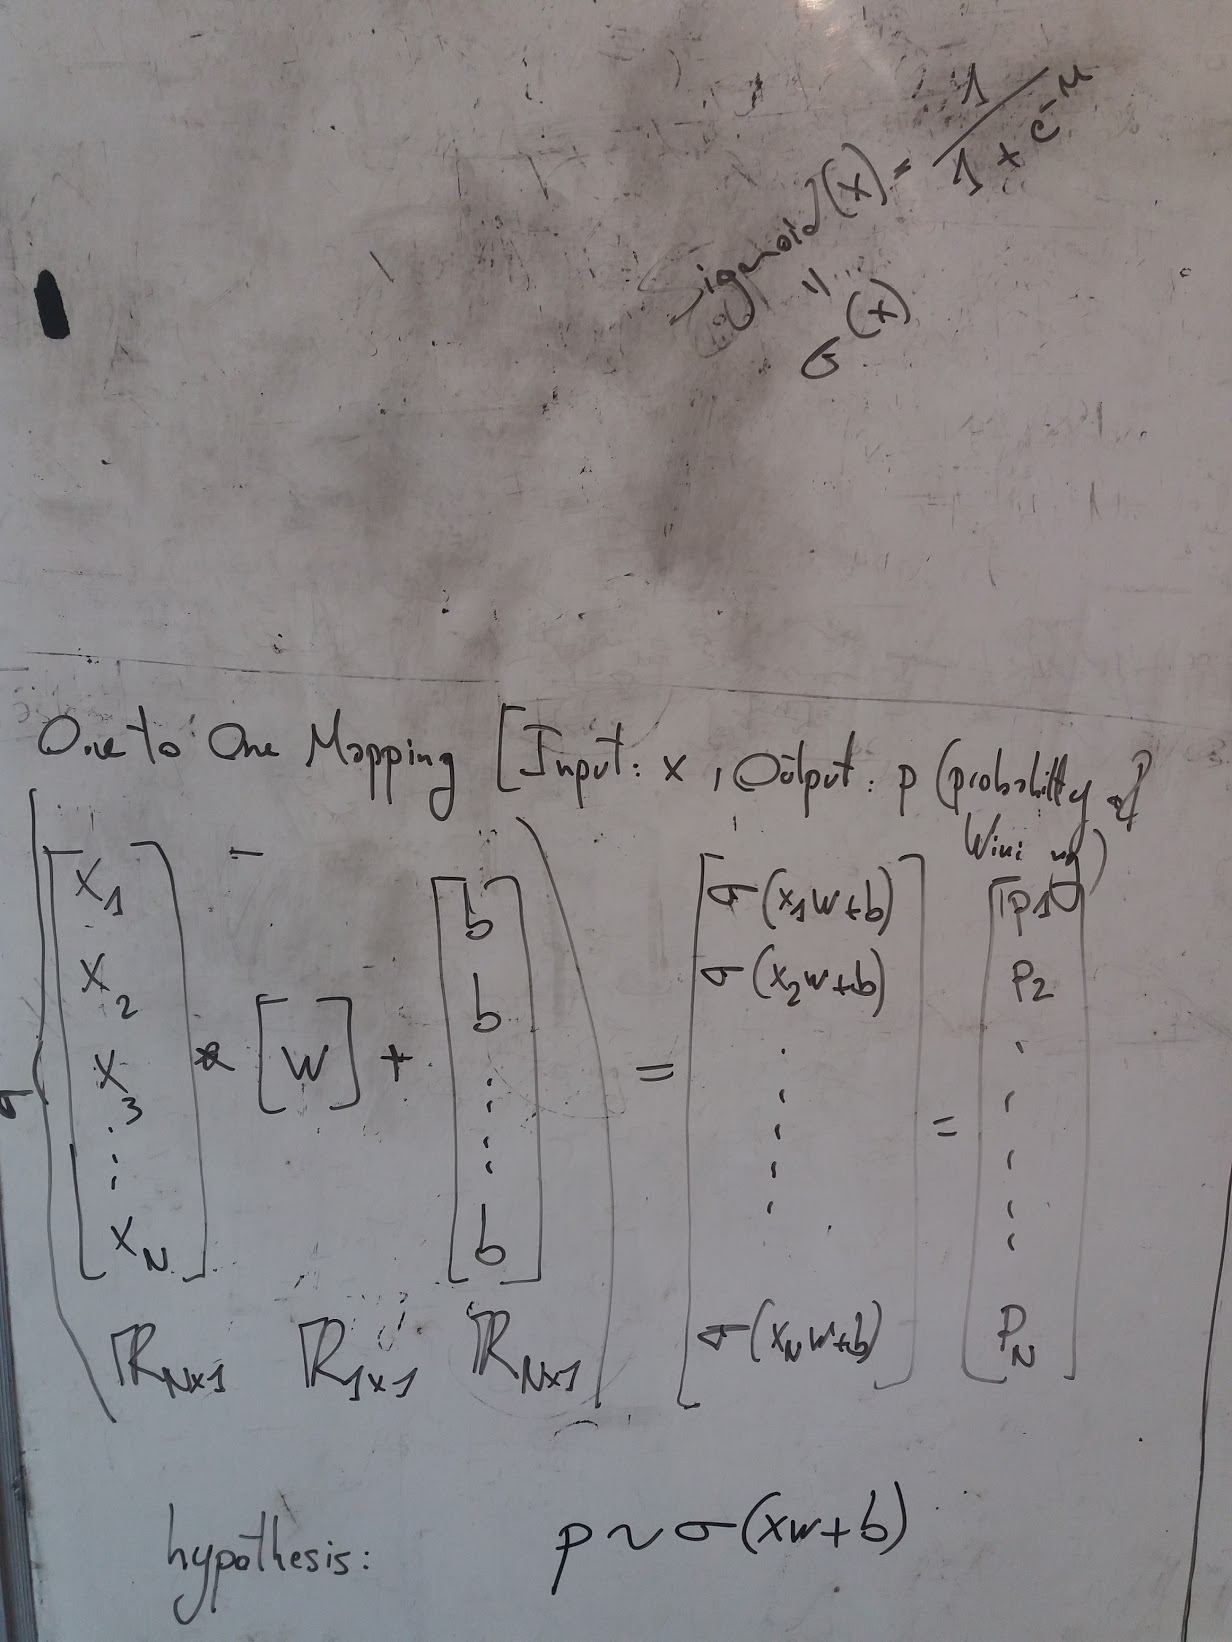 sigmoid(x) = 1 / 1 + e^-x
"
σ(x)
One to One Mapping [Input: x, Output: p (probability of
Wini ng)
σ ( [ x1 x2 x3 ⋮ xN ] * [ w ] + [ b b ⋮ ⋮ b ] ) = [ σ(x1w+b) σ(x2w+b) ⋮ σ(xNw+b) ] = [ p1 p2 ⋮ pN ]
ℝN×1 ℝ1×1 ℝN×1
hypothesis: p ~ σ(xw+b)